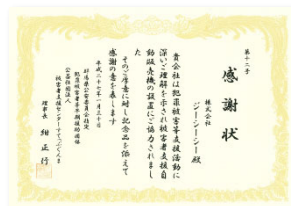 第十二号
感謝状
株式会社
ジーシーシー殿
貴会社は犯罪被害者等支援活動に
深いご理解を示され被害者支援自
動販売機の設置にご協力されまし
た
そのご厚意に対し記念品を添えて
感謝の意を表します
平成二十七年一月三十日
群馬県公安委員会指定
犯罪被害者等早期援助団体
公益社団法人
被害者支援センターすてっぷぐんま
理事長
正行